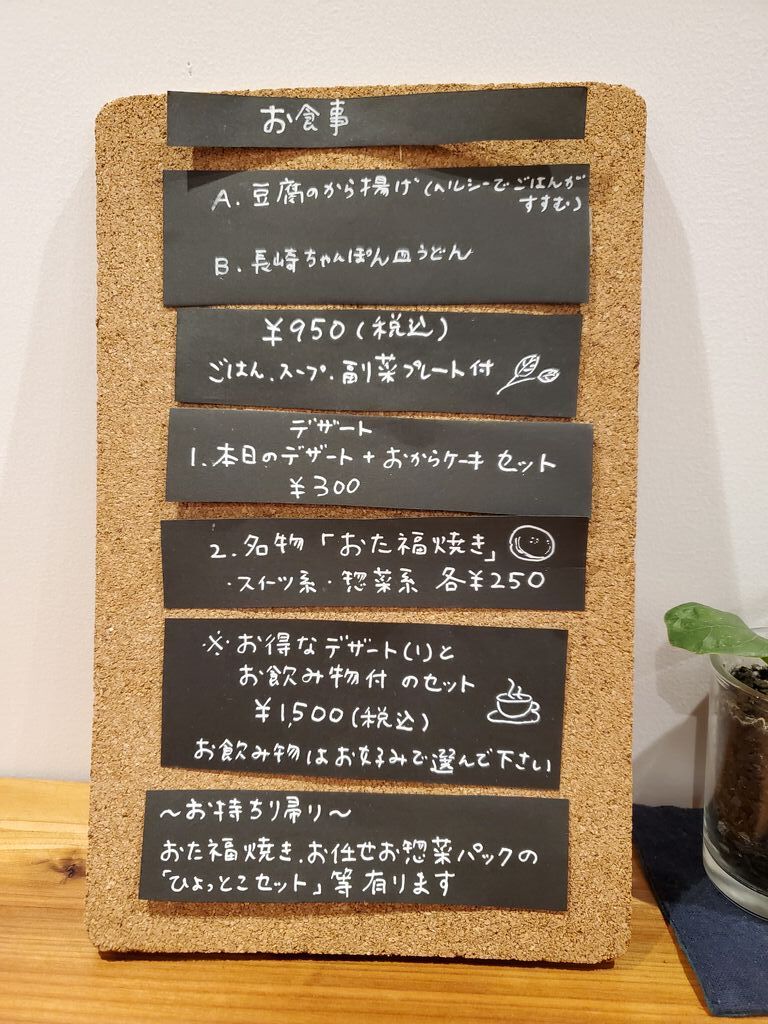 お食事
A. 豆腐のから揚げ(ヘルシーでごはんが
すすむ)
B. 長崎ちゃんぽん皿うどん
¥950(税込)
ごはん、スープ、副菜プレート付
デザート
1. 本日のデザート+おからケーキ セット
¥300
2. 名物「おた福焼き」
・スイーツ系・惣菜系 各¥250
※お得なデザート(1)と
お飲み物付のセット
¥1,500(税込)
お飲み物はお好みで選んで下さい
〜お持ち帰り〜
おた福焼き、お任せお惣菜パックの
「ひょっとこセット」等有ります